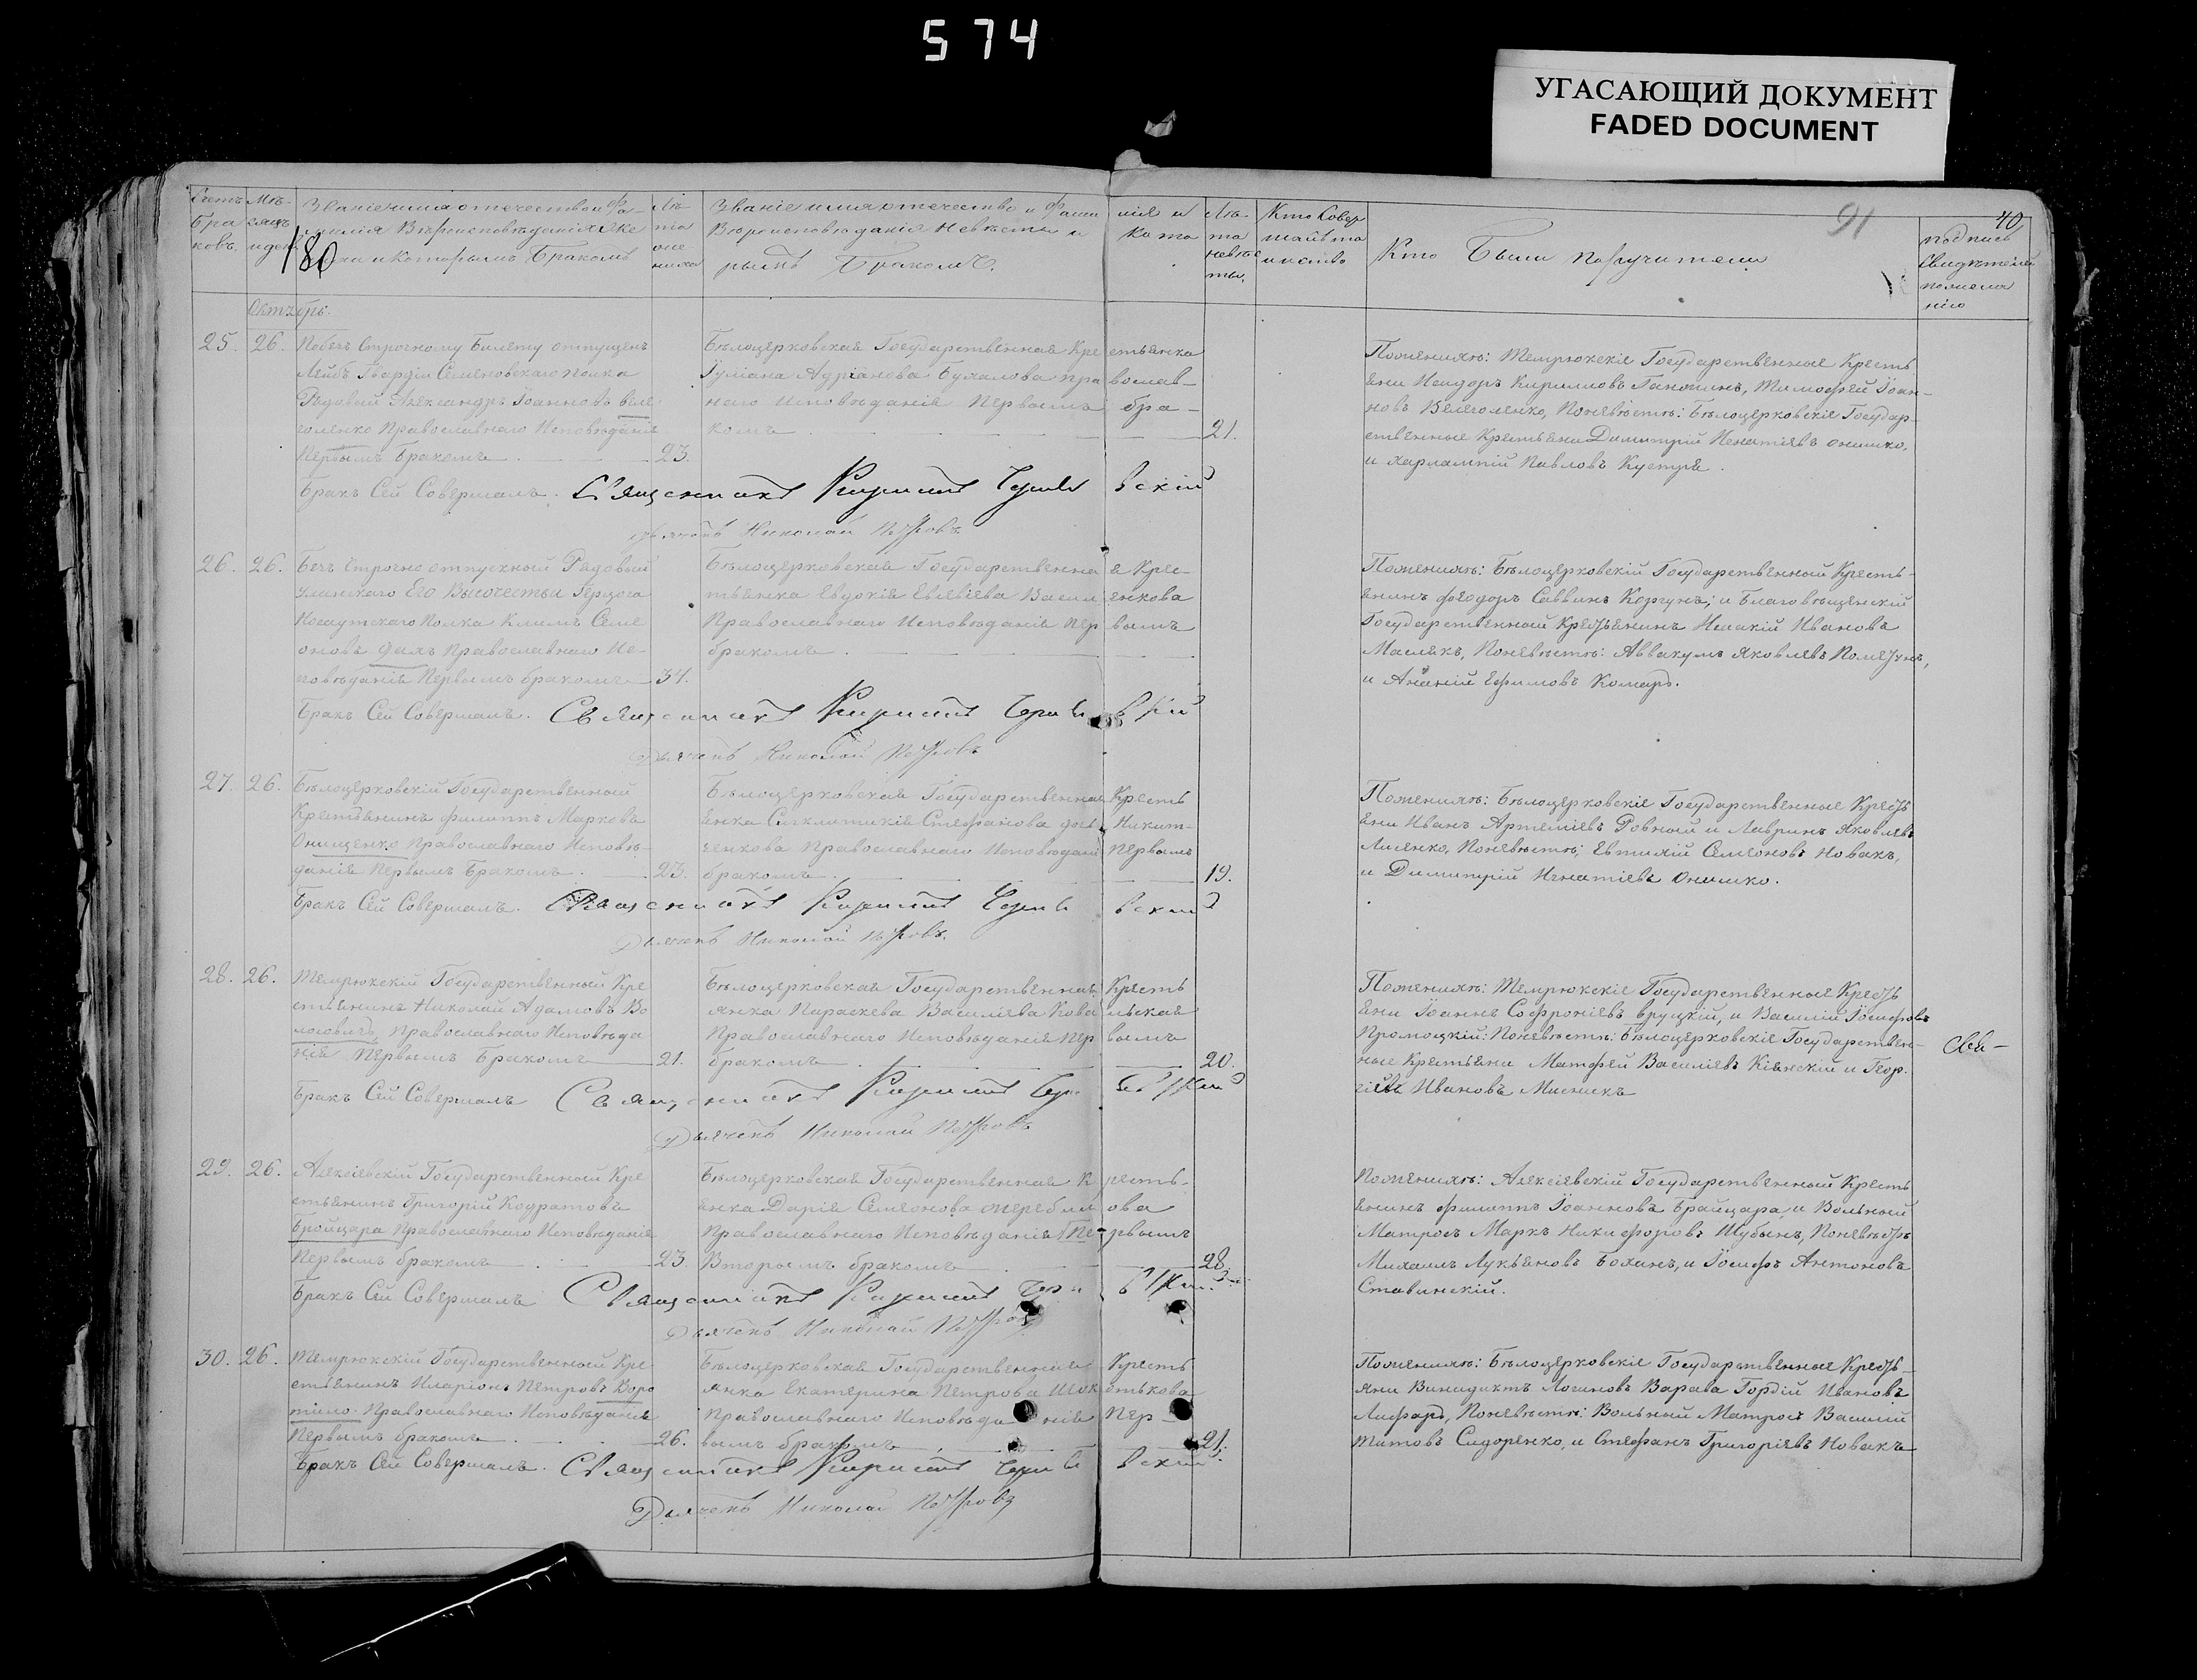 574
УГАСАЮЩИЙ ДОКУМЕНТ
FADED DOCUMENT
91
40
180
Счетъ Бра ковъ.
Мѣ- сяцъ и день
Званіе имя отечество и Фа-
милія Вѣроисповѣданія же
ниха и которымъ Бракомъ
Лѣ та же ниха
Званіе имя отечество и Фами лія и
Вѣроисповѣданія Невѣсты и ко то
рымъ Бракомъ.
Лѣ та невѣс ты.
Кто Совер шалъ та инство
Кто Были поручители
подпись свидѣтелей по желанію
Октябрь.
25. 26.
безъ Строчному Билету отпущенъ
Лейбъ Гвардіи Семеновскаго полка
Рядовый Александръ Іоанновъ Веле
голенко Православнаго Исповѣданія
Первымъ Бракомъ 23.
Бѣлоцерковская Государственная Кре стьянка
Іуліана Адріанова Бухалова пра вослав-
наго исповѣданія первымъ бра-
комъ 21.
Поженихѣ: Темрюкскіе Государственные Кресть
яни Исидоръ Кирилловъ Ганжинъ, Тимофей Іоан-
новъ Велеголенко, Поневѣстѣ: Бѣлоцерковскіе Государ
ственные Крестьяни Димитрій Игнатіевъ Онишко,
и Харлампій Павловъ Кустря.
Бракъ Сей Совершалъ. Священникъ Кириллъ Чернявскій
Дьячекъ Николай Петровъ.
26. 26.
Безъ Строчно отпускный Рядовый
Уланскаго Его Высочества Герцога
Нассаутскаго Полка Климъ Симе
оновъ Даль Православнаго Ис-
повѣданія Первымъ бракомъ 34.
Бѣлоцерковская Государственна я Крес-
тьянка Евдокія Евсевіева Васил енкова
Православнаго Исповѣданія пер вымъ
бракомъ.
Поженихѣ: Бѣлоцерковскій Государственный Кресть-
янинъ Феодоръ Саввинъ Коргунъ; и Благовѣщенскій
Государственный Крестьянинъ Исакій Ивановъ
Маслякъ, Поневѣстѣ: Аввакумъ Яковлевъ Полегунъ,
и Ананій Ефимовъ Комаръ.
Бракъ Сей Совершалъ. Священникъ Кириллъ Чернявскій
Дьячекъ Николай Петровъ
27. 26.
Бѣлоцерковскій Государственный
Крестьянинъ Филиппъ Марковъ
Онищенко Православнаго Исповѣ-
данія Первымъ Бракомъ. 23.
Бѣлоцерковская Государственная Кресть
янка Сигклитикія Стефанова дочь Никит-
ченкова Православнаго Исповѣдані Первымъ
бракомъ. 19.
Поженихѣ: Бѣлоцерковскіе Государственные Кресть
яни Иванъ Артеміевъ Ровный и Лавринъ Яковлевъ
Лисенко, Поневѣстѣ; Евтихій Семеоновъ Новакъ,
и Димитрій Игнатіевъ Онишко.
Бракъ Сей Совершалъ. Священникъ Кириллъ Чернявскій
Дьячекъ Николай Петровъ.
28. 26.
Темрюкскій Государственный Кре
стьянинъ Николай Адамовъ Во
лосовичъ, Православнаго Исповѣда
нія Первымъ Бракомъ 21.
Бѣлоцерковская Государственная Кресть
янка Параскева Василіева Кова льская
Православнаго Исповѣданія Пер вымъ
бракомъ. 20.
Поженихѣ: Темрюкскіе Государственные Кресть
яни Іоаннъ Софроніевъ Вруцкій, и Василій Іосифовъ
Промоцкій: Поневѣстѣ: Бѣлоцерковскіе Государствен-
ные Крестьяни Матфей Василіевъ Кіянскій и Геор-
гій Ивановъ Мисникъ
Сви-
Бракъ Сей Совершалъ Священникъ Кириллъ Чернявскій
Дьячекъ Николай Петровъ
29. 26.
Алексіевскій Государственный Кре
стьянинъ Григорій Кодратовъ
Бройцара Православнаго Исповѣданія
Первымъ бракомъ 23.
Бѣлоцерковская Государственная К ресть-
янка Дарія Семеонова Теребил ова
Православнаго Исповѣданія Пе- рвымъ
Вторымъ бракомъ 28.
Поженихѣ: Алексіевскій Государственный Кресть
янинъ Филиппъ Іоанновъ Брайцара, и Вольный
Матросъ Маркъ Никифоровъ Шубынъ, Поневѣстѣ
Михаилъ Лукьяновъ Боханъ, и Іосифъ Антоновъ
Ставинскій.
Бракъ Сей Совершалъ Священникъ Кириллъ Чернявскій
Дьячекъ Николай Петровъ
30. 26.
Темрюкскій Государственный Кре
стьянинъ Иларіонъ Петровъ Воро
тило Православнаго Исповѣданія
Первымъ бракомъ 26.
Бѣлоцерковская Государственная Кресть
янка Екатерина Петрова
Православнаго Исповѣданія Пер-
вымъ бракомъ 21.
Поженихѣ: Бѣлоцерковскіе Государственные Кресть-
яни Винидиктъ Логиновъ Варава Гордій Ивановъ
Лифаръ, Поневѣстѣ: Вольный Матросъ Василій
Титовъ Сидоренко, и Стефанъ Григоріевъ Новакъ
Бракъ Сей Совершалъ. Священникъ Кириллъ Чернявскій
Дьячекъ Николай Петровъ